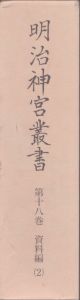 明治神宮叢書
第十八巻 資料編(2)